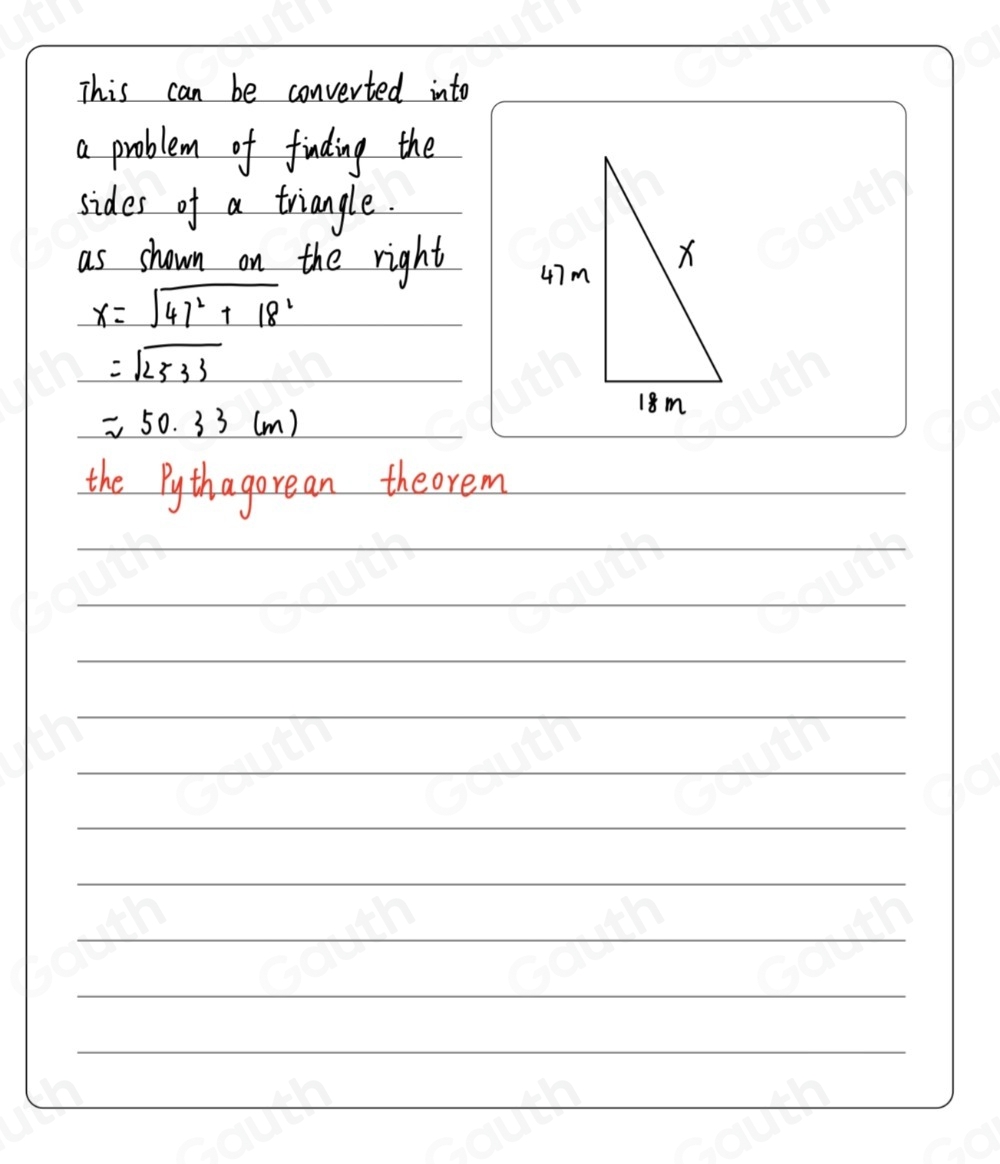 This can be converted into
a problem of finding the
sides of a triangle.
as shown on the right
x = √47² + 18²
= √2533
≈ 50.33 (m)
the Pythagorean theorem
47m
x
18m
Gauth